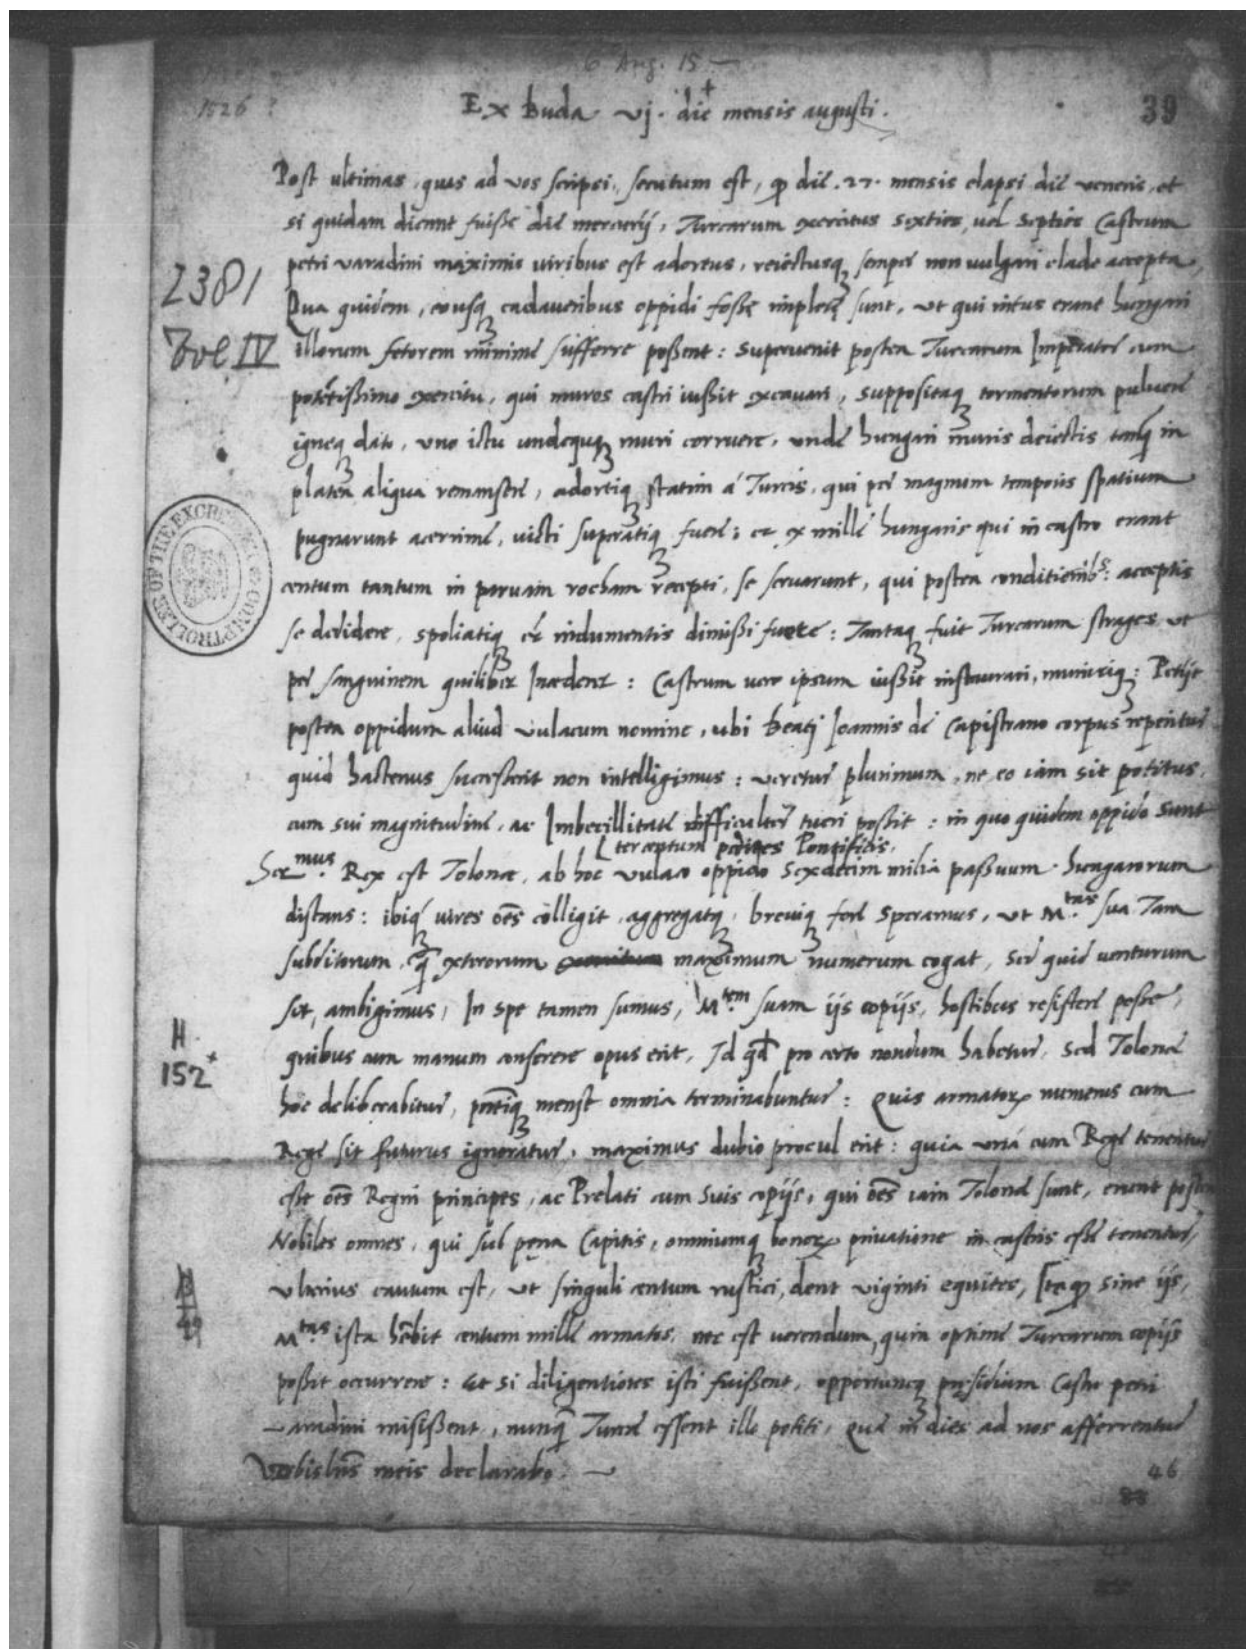 6 Aug. 15 —
1526 ?
39
Ex Buda vj. die mensis augusti.
Post ultimas, quas ad vos scripsi, secutum est, q die .27. mensis elapsi die veneris, et
si quidam dicunt fuisse die mercurij, Turcarum exercitus sexties, vel septies Castrum
petri varadini maximis viribus est adortus, reiectusq semper non vulgari clade accepta,
2381
Qua quidem, eousq cadaveribus oppidi fosse implete sunt, ut qui intus erant hungari
Vol. IV
illorum fetorem minime sufferre possent: supervenit postea Turcarum Imperator cum
potetissimo exercitu, qui muros castri iussit excavari, suppositaq tormentorum pulvere
igneq dato, uno ictu undequq muri corruere, unde hungari muris deiectis tanq in
platea aliqua remansere, adortiq statim á Turcis, qui per magnum temporis spatium
pugnarunt acerrime, victi superatiq fuere: et ex mille hungaris qui in castro erant
OF THE EXCHEQUER COMPTROLLER
centum tantum in parvam rocham recepti, se servarunt, qui postea conditionibs: acceptis
se dedidere, spoliatiq et indumentis dimissi fuere: Tantaq fuit Turcarum strages ut
per sanguinem quilibet Incederet: Castrum vero ipsum iussit instaurari, muniriq: Petijt
postea oppidum aliud vulacum nomine, ubi Beatj Ioannis de Capistrano corpus reperitur
quid hactenus successerit non intelligimus: veretur plurimum, ne eo iam sit potitus,
cum sui magnitudine, ac Imbecillitate difficulter tueri possit: in quo quidem oppido sunt
tercentum pedites Pontificis.
Sermus. Rex est Tolone, ab hoc vulaco oppido sexdecim milia passuum hungarorum
distans: ibiq vires oes colligit, aggregatq, breviq fore speramus, ut Mtas. sua Tam
subditorum, q exterorum maximum numerum cogat, sed quid venturum
sit, ambigimus, In spe tamen sumus, Mtem. suam ijs copijs, hostibus resistere posse,
H.
152+
quibus cum manum conserere opus erit, Id qd pro certo nondum habetur, sed Tolone
hoc deliberabitur, pntiq mense omnia terminabuntur: Quis armator numerus cum
Rege sit futurus ignoratur, maximus dubio procul erit: quia una cum Rege tenentur
esse oes Regni principes, ac Prelati cum suis copijs, qui oes iam Tolone sunt, erunt postea
Nobiles omnes, qui sub pena Capitis, omniumq bonor privatione in castris esse tenentur,
ulterius cautum est, ut singuli centum rustici, dent viginti equites, Itaq sine ijs,
Mtas. ista hebit centum mille armatos, nec est verendum, quin optime Turcarum copijs
possit occurrere: et si diligentiores isti fuissent, opportuneq presidium Castro petri
varadini misissent, nunq Turce essent illo potiti, Que in dies ad nos afferrentur
Vobis lris meis declarabo. —
46